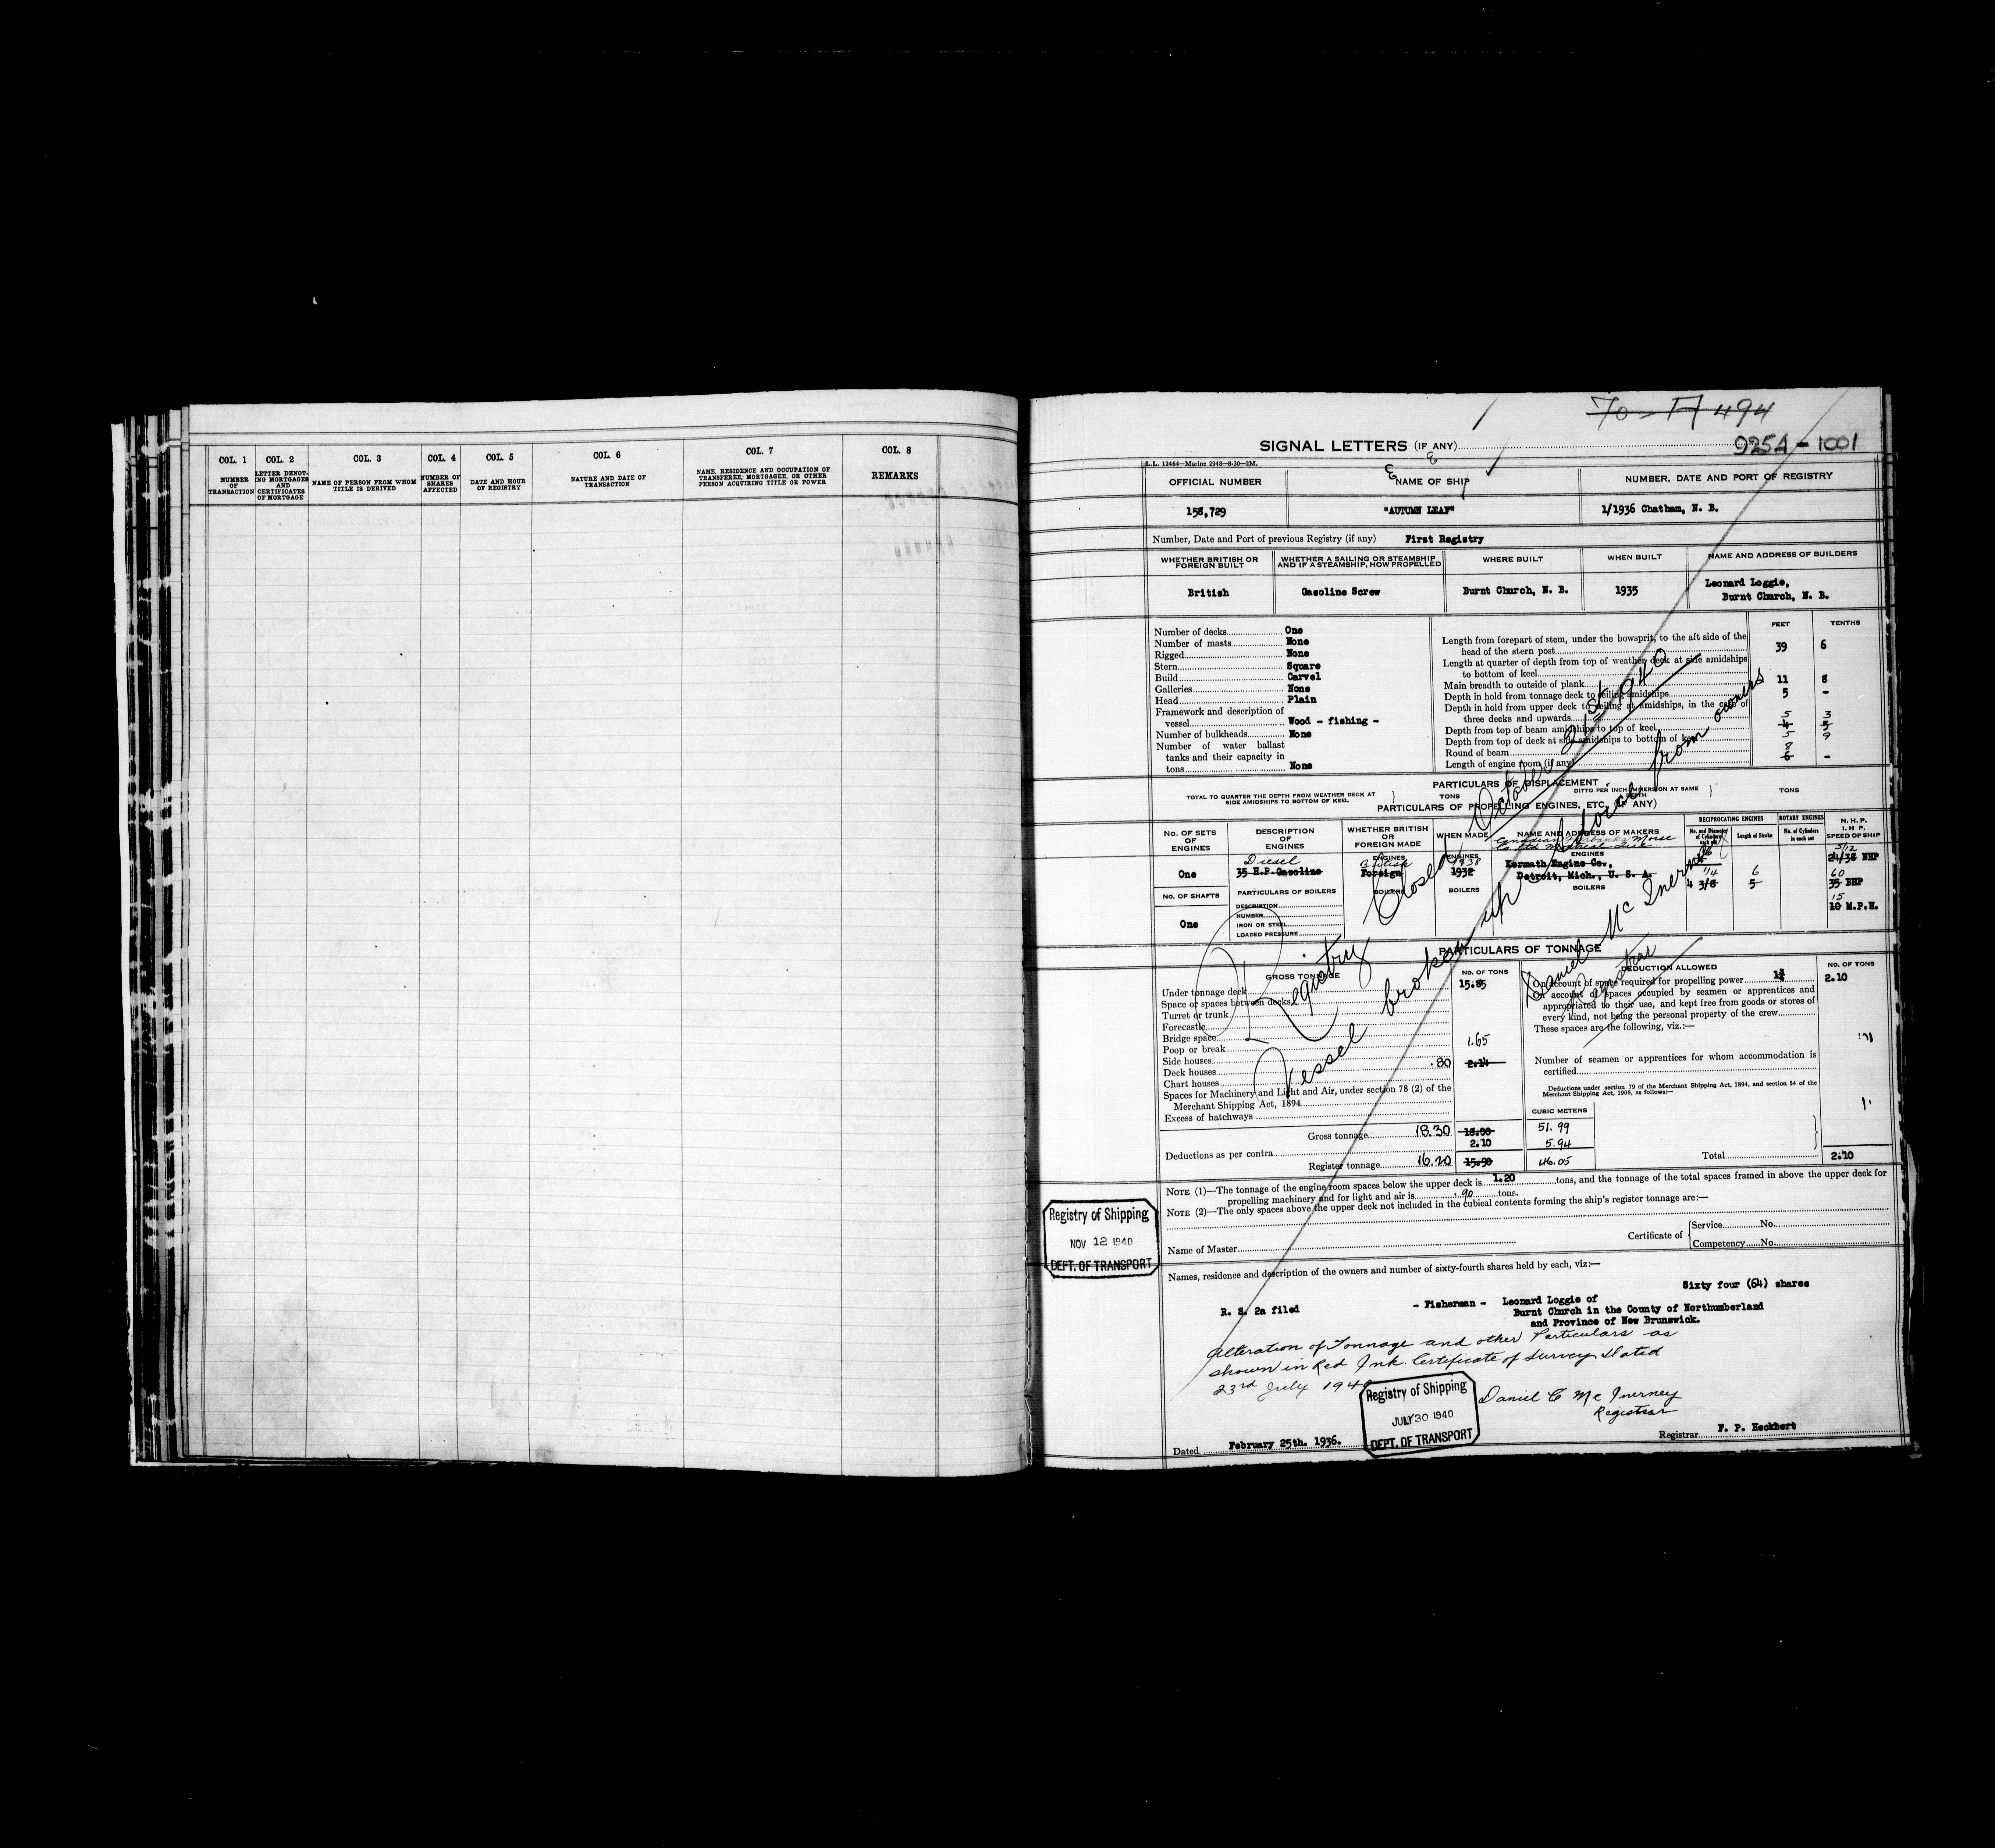 COL. 1
NUMBER OF TRANSACTION
COL. 2
LETTER DENOTING MORTGAGES AND CERTIFICATES OF MORTGAGE
COL. 3
NAME OF PERSON FROM WHOM TITLE IS DERIVED
COL. 4
NUMBER OF SHARES AFFECTED
COL. 5
DATE AND HOUR OF REGISTRY
COL. 6
NATURE AND DATE OF TRANSACTION
COL. 7
NAME, RESIDENCE AND OCCUPATION OF TRANSFEREE, MORTGAGEE, OR OTHER PERSON ACQUIRING TITLE OR POWER
COL. 8
REMARKS
494
SIGNAL LETTERS (IF ANY) 925A-1001
L.L. 12464—Marine 2948—8-30—2M.
OFFICIAL NUMBER NAME OF SHIP NUMBER, DATE AND PORT OF REGISTRY
158,729 "AUTUMN LEAF" 1/1936 Chatham, N. B.
Number, Date and Port of previous Registry (if any) First Registry
WHETHER BRITISH OR FOREIGN BUILT
WHETHER A SAILING OR STEAMSHIP AND IF A STEAMSHIP, HOW PROPELLED
WHERE BUILT
WHEN BUILT
NAME AND ADDRESS OF BUILDERS
British Gasoline Screw Burnt Church, N. B. 1935 Leonard Loggie,
Burnt Church, N. B.
FEET TENTHS
Number of decks One
Number of masts None
Rigged None
Stern Square
Build Carvel
Galleries None
Head Plain
Framework and description of
vessel Wood - fishing -
Number of bulkheads None
Number of water ballast
tanks and their capacity in
tons None
Length from forepart of stem, under the bowsprit, to the aft side of the
head of the stern post 39 6
Length at quarter of depth from top of weather deck at side amidships
to bottom of keel
Main breadth to outside of plank 11 8
Depth in hold from tonnage deck to ceiling amidships 5 -
Depth in hold from upper deck to ceiling at amidships, in the case of
three decks and upwards
Depth from top of beam amidships to top of keel 5 3
Depth from top of deck at side amidships to bottom of keel 5 9
Round of beam
Length of engine room (if any) 8 -
PARTICULARS OF DISPLACEMENT
TOTAL TO QUARTER THE DEPTH FROM WEATHER DECK AT SIDE AMIDSHIPS TO BOTTOM OF KEEL TONS
DITTO PER INCH IMMERSION AT SAME DEPTH TONS
PARTICULARS OF PROPELLING ENGINES, ETC. (IF ANY)
NO. OF SETS OF ENGINES
DESCRIPTION OF ENGINES
WHETHER BRITISH OR FOREIGN MADE
WHEN MADE
NAME AND ADDRESS OF MAKERS
RECIPROCATING ENGINES
No. and Diameter of Cylinders in each set
Length of Stroke
ROTARY ENGINES
No. of Cylinders in each set
N. H. P.
I. H. P.
SPEED OF SHIP
Canadian Fairbanks Morse
Co Ltd Montreal
ENGINES ENGINES ENGINES
Diesel British 1938
One 35 H.P. Gasoline Foreign 1932 Kermath Engine Co.,
Detroit, Mich., U. S. A.
5/12
24/35 NHP
1/4 6 60
4 3/8 5 35 BHP
15
10 M.P.H.
NO. OF SHAFTS
One
PARTICULARS OF BOILERS
BOILERS BOILERS BOILERS
DESCRIPTION
NUMBER
IRON OR STEEL
LOADED PRESSURE
Registry Closed October 21st 1940
Vessel broken up Advice from owners
Daniel Mc Inerney
Registrar
PARTICULARS OF TONNAGE
GROSS TONNAGE NO. OF TONS
Under tonnage deck 15.85
Space or spaces between decks
Turret or trunk
Forecastle
Bridge space
Poop or break 1.65
Side houses
Deck houses .80 2.14
Chart houses
Spaces for Machinery and Light and Air, under section 78 (2) of the
Merchant Shipping Act, 1894
Excess of hatchways
Gross tonnage 18.30
Deductions as per contra 2.10
Register tonnage 16.20
DEDUCTION ALLOWED NO. OF TONS
On account of space required for propelling power 2.10
On account of spaces occupied by seamen or apprentices and
appropriated to their use, and kept free from goods or stores of
every kind, not being the personal property of the crew
These spaces are the following, viz:—
Number of seamen or apprentices for whom accommodation is
certified
Deductions under section 79 of the Merchant Shipping Act, 1894, and section 54 of the
Merchant Shipping Act, 1906, as follows:—
CUBIC METERS
51.99
5.94
46.05
Total 2.10
NOTE (1)—The tonnage of the engine room spaces below the upper deck is 1.20 tons, and the tonnage of the total spaces framed in above the upper deck for
propelling machinery and for light and air is .90 tons.
NOTE (2)—The only spaces above the upper deck not included in the cubical contents forming the ship's register tonnage are:—
Registry of Shipping
NOV 12 1940
DEPT. OF TRANSPORT
Name of Master
Certificate of
Service No.
Competency No.
Names, residence and description of the owners and number of sixty-fourth shares held by each, viz:—
Sixty four (64) shares
R. S. 2a filed - Fisherman - Leonard Loggie of
Burnt Church in the County of Northumberland
and Province of New Brunswick.
Alteration of Tonnage and other Particulars as
shown in Red Ink. Certificate of Survey Dated
23rd July 1940
Registry of Shipping
JULY 30 1940
DEPT. OF TRANSPORT
Daniel C Mc Inerney
Registrar
Dated February 25th. 1936.
Registrar F. P. Heckbert